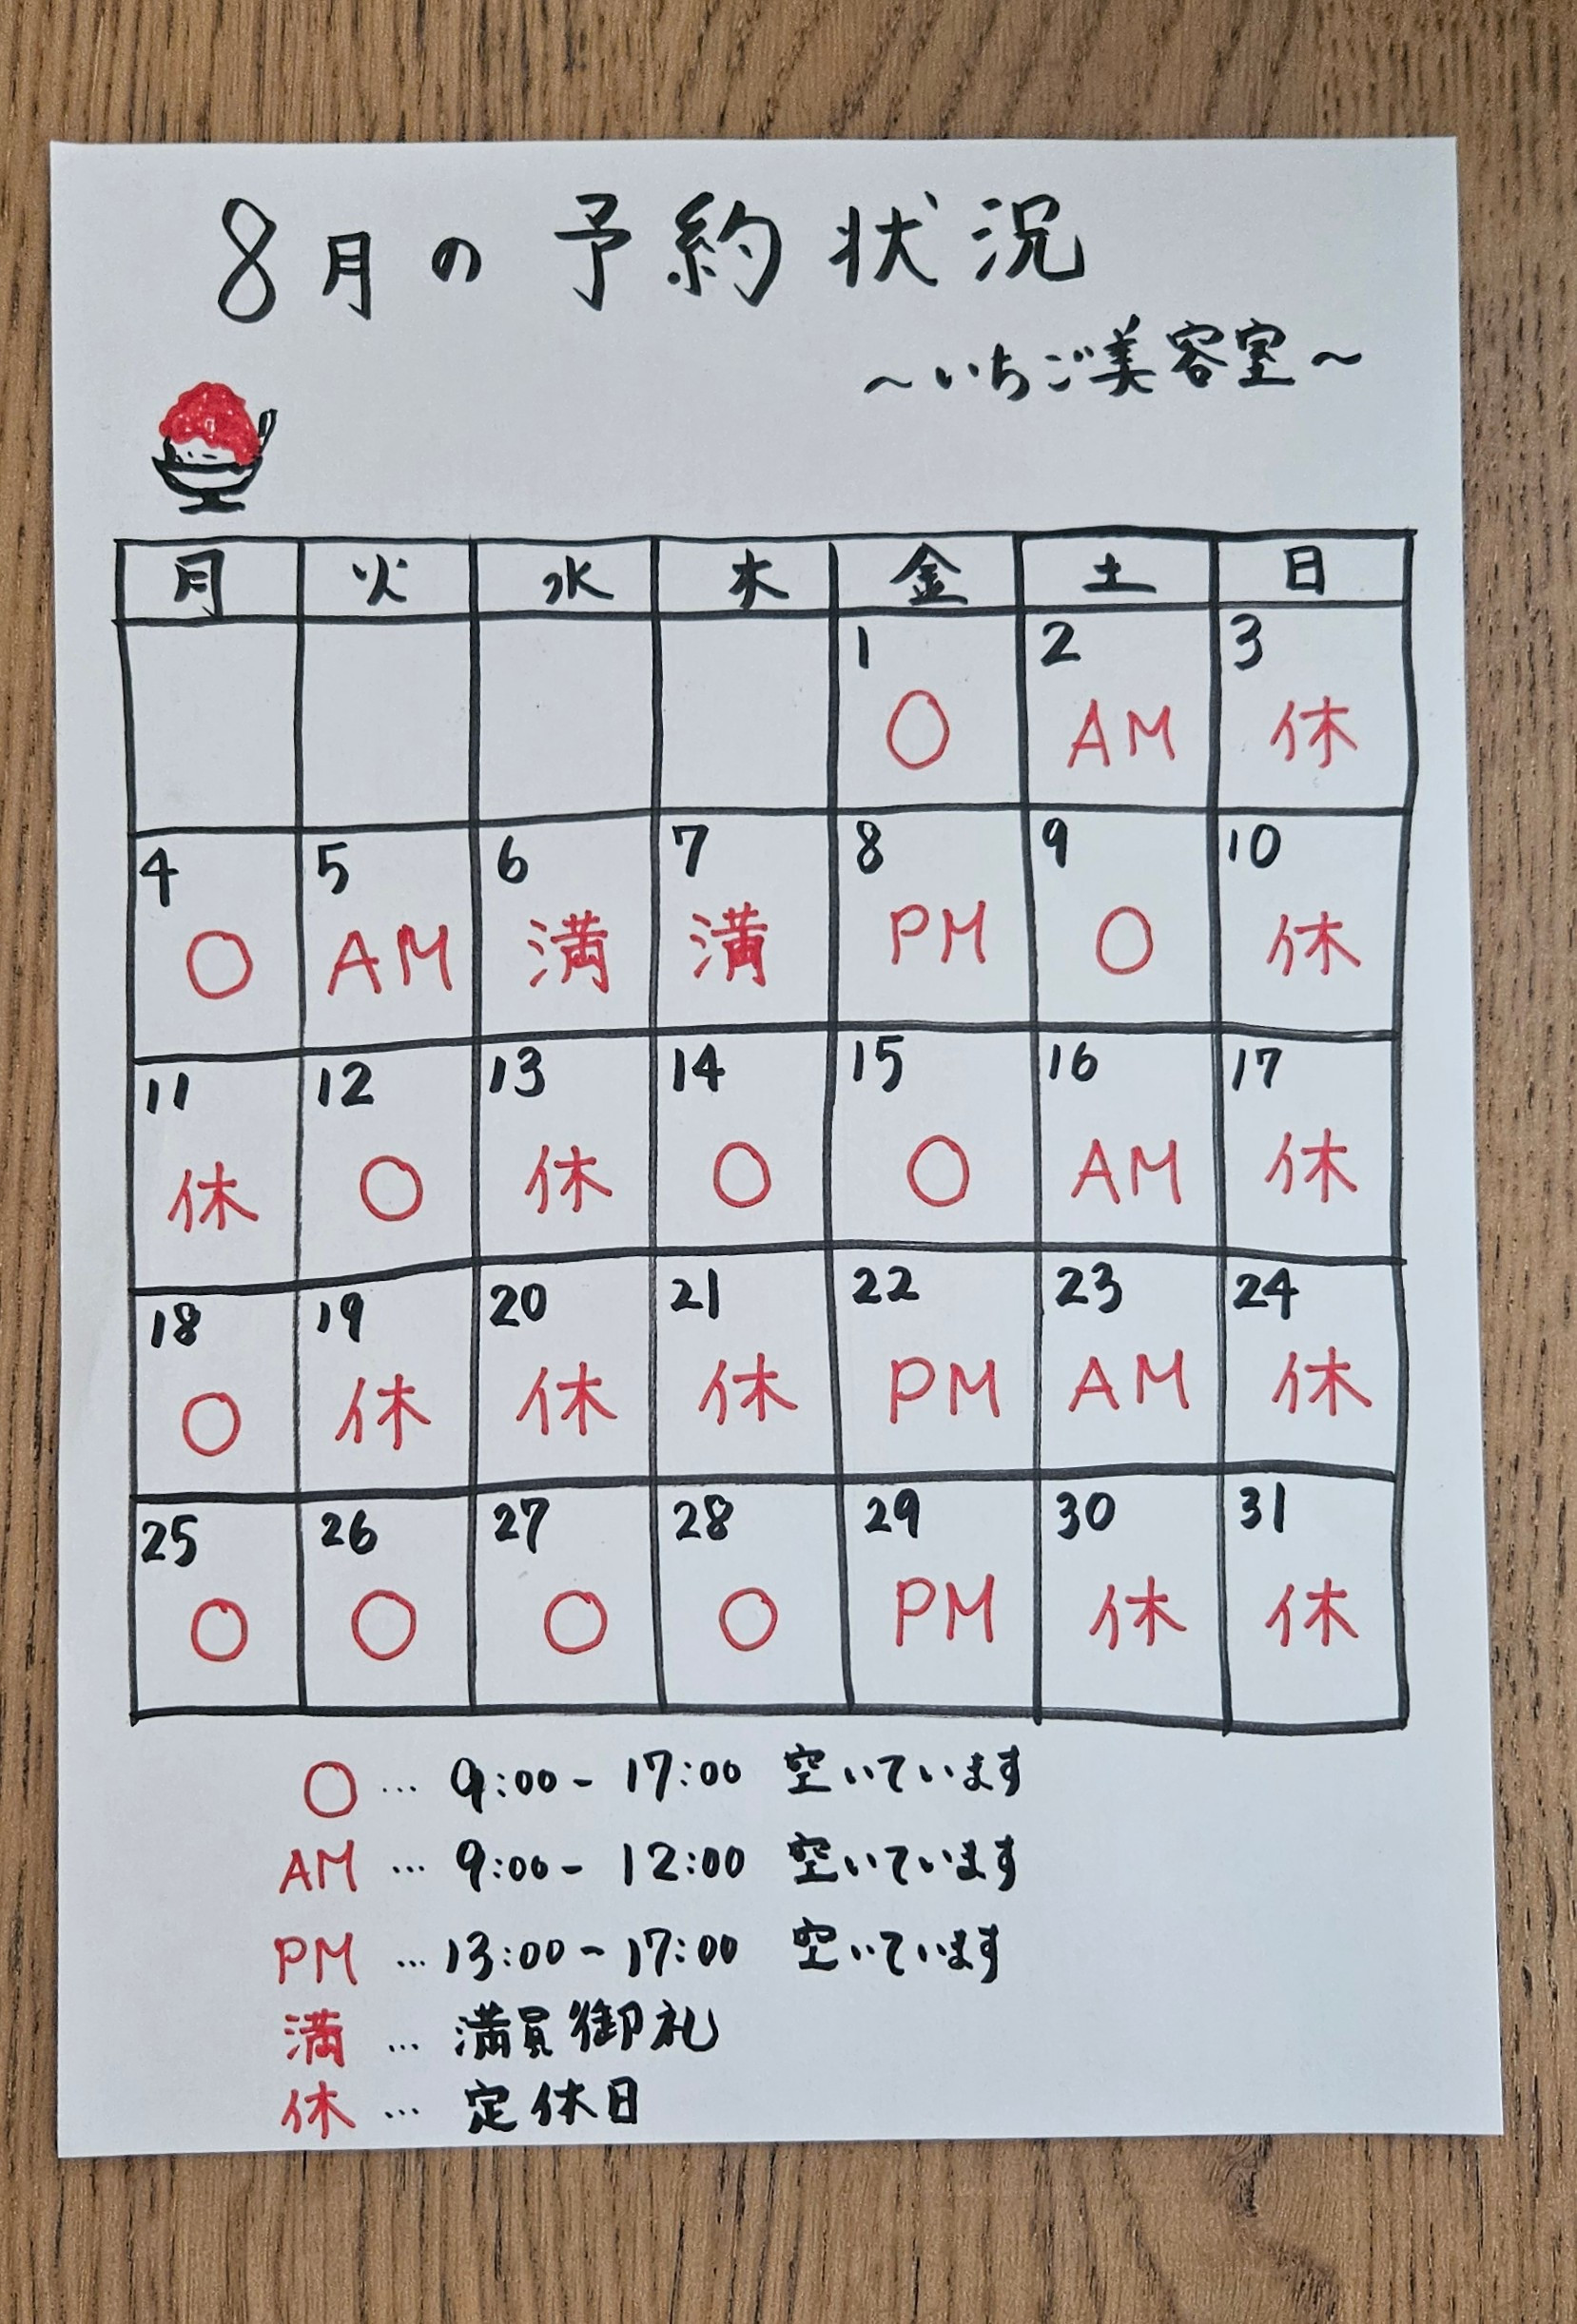 8月の予約状況
～いちご美容室～
月 火 水 木 金 土 日
1 2 3
○ AM 休
4 5 6 7 8 9 10
○ AM 満 満 PM ○ 休
11 12 13 14 15 16 17
休 ○ 休 ○ ○ AM 休
18 19 20 21 22 23 24
○ 休 休 休 PM AM 休
25 26 27 28 29 30 31
○ ○ ○ ○ PM 休 休
○ … 9:00 - 17:00 空いています
AM … 9:00 - 12:00 空いています
PM … 13:00 - 17:00 空いています
満 … 満員御礼
休 … 定休日